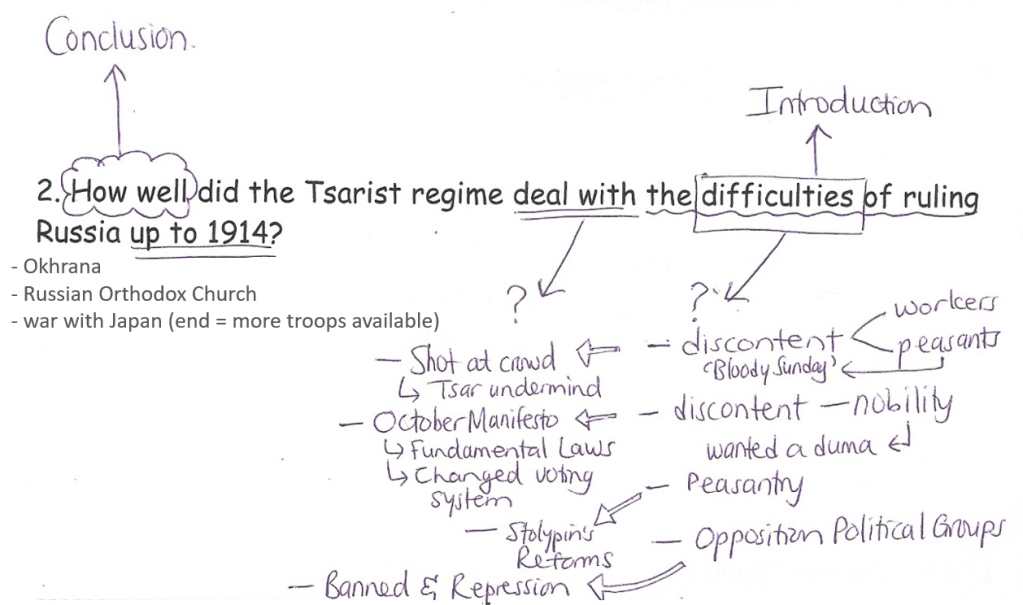 Conclusion.
Introduction
2. How well did the Tsarist regime deal with the difficulties of ruling
Russia up to 1914?
- Okhrana
- Russian Orthodox Church
- war with Japan (end = more troops available)
?
?
workers
- discontent
peasants
'Bloody Sunday'
- Shot at crowd
↳ Tsar undermind
- discontent - nobility
wanted a duma
- October Manifesto
↳ Fundamental Laws
↳ Changed voting
system
- Peasantry
- Stolypin's
Reforms
- Opposition Political Groups
- Banned & Repression